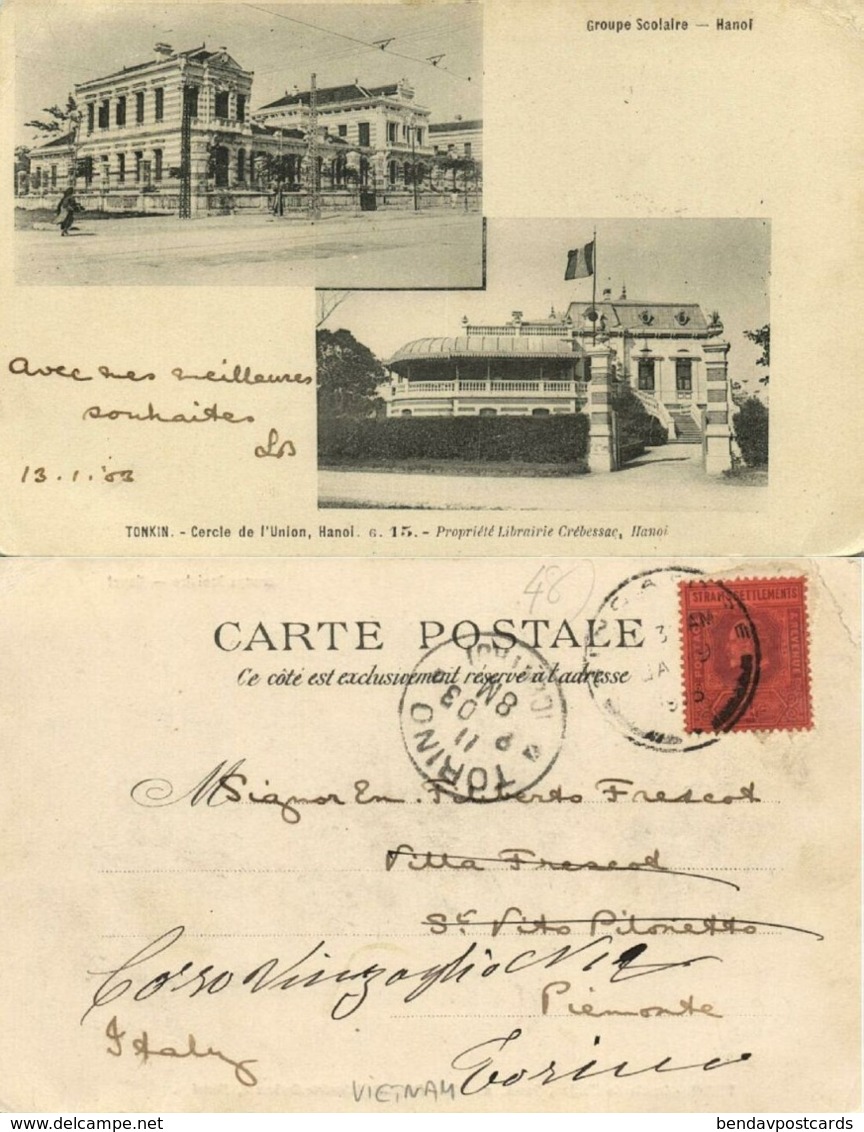 Groupe Scolaire — Hanoï
Avec mes meilleures
souhaites
LB
13.1.'03
TONKIN. - Cercle de l'Union, Hanoï. G. 15. - Propriété Librairie Crébessac, Hanoï
48
CARTE POSTALE
Ce côté est exclusivement réservé à l'adresse
STRAITS SETTLEMENTS
TORINO
11
03
8M
M Signor Em. Filiberto Frescot
Villa Frescot
St Vito Pilonetto
Corso Vinzaglio N 12
Piemonte
Italy
Torino
VIETNAM
bendavpostcards